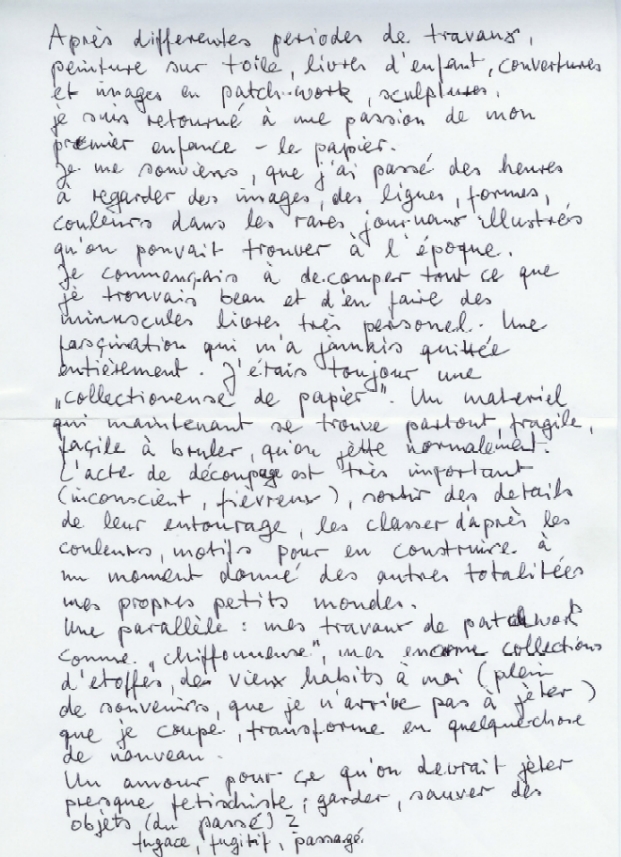 Après differentes periodes de travaux,
peinture sur toile, livres d'enfant, couvertures
et images en patch-work, sculptures,
je suis retourné à une passion de mon
premier enfance – le papier.
Je me souviens, que j'ai passé des heures
à regarder des images, des lignes, formes,
couleurs dans les rares journaux illustrés
qu'on pouvait trouver à l'époque.
Je commençais à decouper tout ce que
je trouvais beau et d'en faire des
minuscules livres très personel. Une
fascination qui m'a jamais quittée
entièrement. J'étais toujour une
„collectioneuse de papier". Un materiel
qui maintenant se trouve partout, fragile,
façile à bruler, qu'on jètte normalement.
L'acte de découpage est très important
(inconscient, fievreux), sortir des details
de leur entourage, les classer d'après les
couleurs, motifs pour en construire à
un moment donné des autres totalitées
mes propres petits mondes.
Une parallèle : mes travaux de patchwork
comme „chiffonneuse", mes enorme collections
d'etoffes, des vieux habits à moi (plein
de souvenirs, que je n'arrive pas à jèter)
que je coupe, transforme en quelquechose
de nouveau.
Un amour pour ce qu'on devrait jèter
presque fetischiste ; garder, sauver des
objets (du passé) ?
fugace, fugitif, passagé.